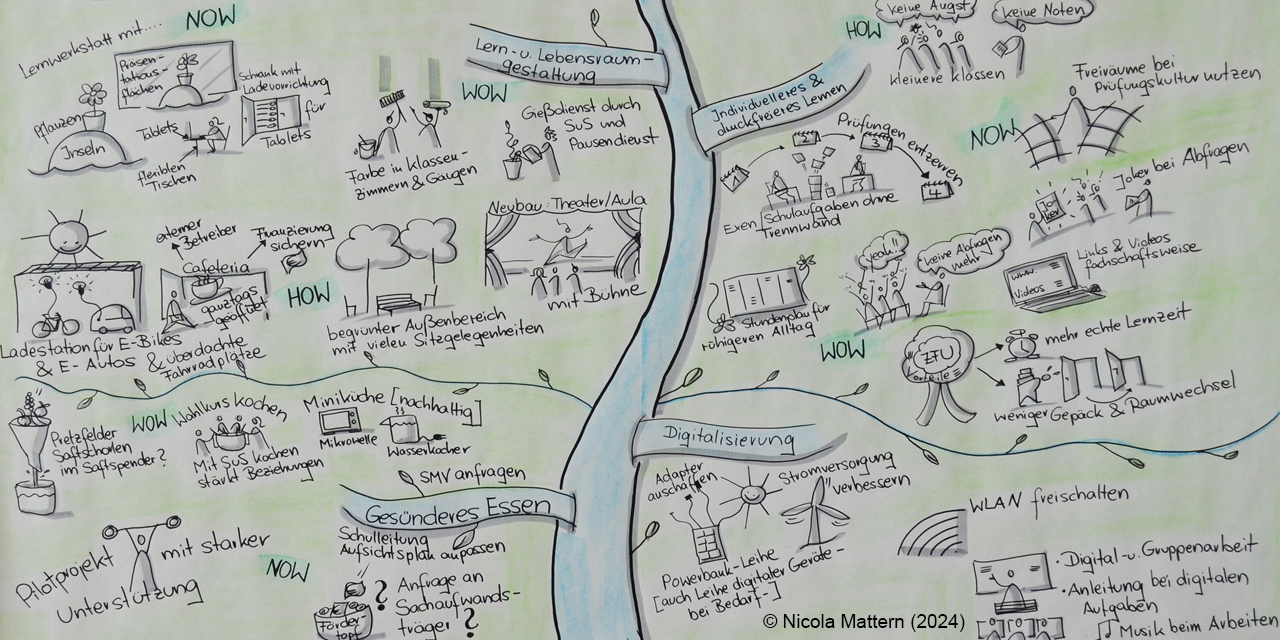 NOW
Lernwerkstatt mit....
Präsen-
tations-
flächen
Pflanzen
Inseln
Tablets
flexiblen
Tischen
Schrank mit
Ladevorrichtung
für
Tablets
Lern- u. Lebensraum-
gestaltung
WOW
Farbe in Klassen-
zimmern & Gängen
Gießdienst durch
SuS und
Pausendienst
externer
Betreiber
Finanzierung
sichern
Cafeteria
ganztags
geöffnet
HOW
Ladestation für E-Bikes
& E-Autos & überdachte
Fahrradplätze
begrünter Außenbereich
mit vielen Sitzgelegenheiten
Neubau: Theater/Aula
mit Bühne
HOW
keine Angst
keine Noten
kleinere Klassen
Individuelleres &
druckfreieres Lernen
NOW
Freiräume bei
Prüfungskultur nutzen
1
2
3
4
Prüfungen entzerren
Exen/Schulaufgaben ohne
Trennwand
Joker bei Abfragen
Jo
ker
Yeah!!
keine Abfragen
mehr
www.
Videos
Links & Videos
fachschaftsweise
Stundenplan für
ruhigeren Alltag
WOW
ZFU
Vorteile
mehr echte Lernzeit
weniger Gepäck & Raumwechsel
WOW
Pretzfelder
Saftschorlen
im Saftspender?
Wahlkurs kochen
Mit SuS kochen
stärkt Beziehungen
Miniküche [nachhaltig]
Mikrowelle
Wasserkocher
SMV anfragen
Gesünderes Essen
Pilotprojekt
mit starker
Unterstützung
NOW
Schulleitung
Aufsichtsplan anpassen
?
Förder-
topf
Anfrage an
Sachaufwands-
träger ?
Digitalisierung
Adapter
anschaffen
Stromversorgung
verbessern
Powerbank-Leihe
[auch Leihe digitaler Geräte-
bei Bedarf-]
WLAN freischalten
• Digital- u. Gruppenarbeit
• Anleitung bei digitalen
Aufgaben
Musik beim Arbeiten
© Nicola Mattern (2024)